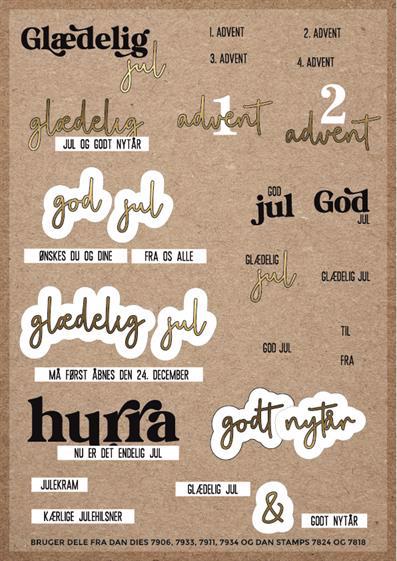 Glædelig
jul
1. ADVENT
2. ADVENT
3. ADVENT
4. ADVENT
glædelig
JUL OG GODT NYTÅR
1
advent
2
advent
god jul
ØNSKES DU OG DINE
FRA OS ALLE
GOD
jul
God
JUL
GLÆDELIG
jul
GLÆDELIG JUL
glædelig jul
MÅ FØRST ÅBNES DEN 24. DECEMBER
GOD JUL
TIL
FRA
hurra
NU ER DET ENDELIG JUL
godt nytår
JULEKRAM
GLÆDELIG JUL
&
KÆRLIGE JULEHILSNER
GODT NYTÅR
BRUGER DELE FRA DAN DIES 7906, 7933, 7911, 7934 OG DAN STAMPS 7824 OG 7818